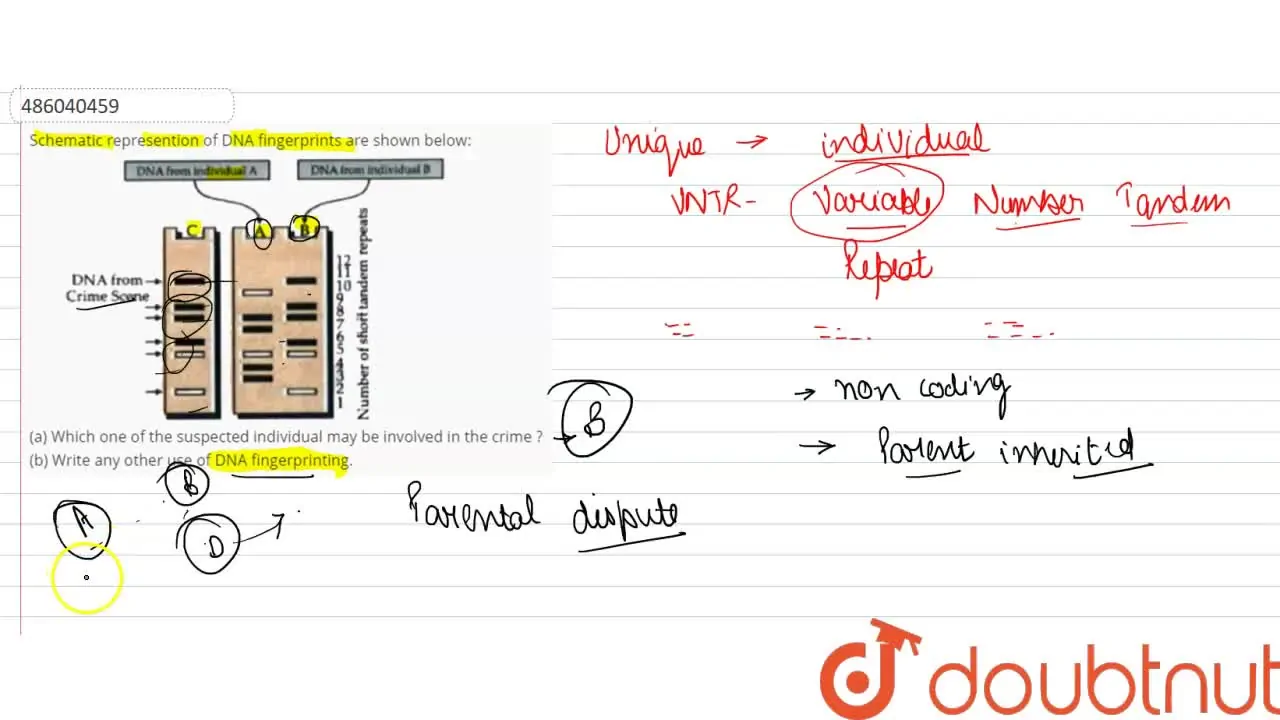 486040459
Schematic represention of DNA fingerprints are shown below:
DNA from individual A
DNA from individual B
C
A
B
DNA from
Crime Scene
12
11
10
9
8
7
6
5
4
3
2
1
Number of short tandem repeats
(a) Which one of the suspected individual may be involved in the crime ?
(b) Write any other use of DNA fingerprinting.
B
B
A
D
Parental dispute
Unique → individual
VNTR- Variable Number Tandem
Repeat
→ non coding
→ Parent inherited
doubtnut